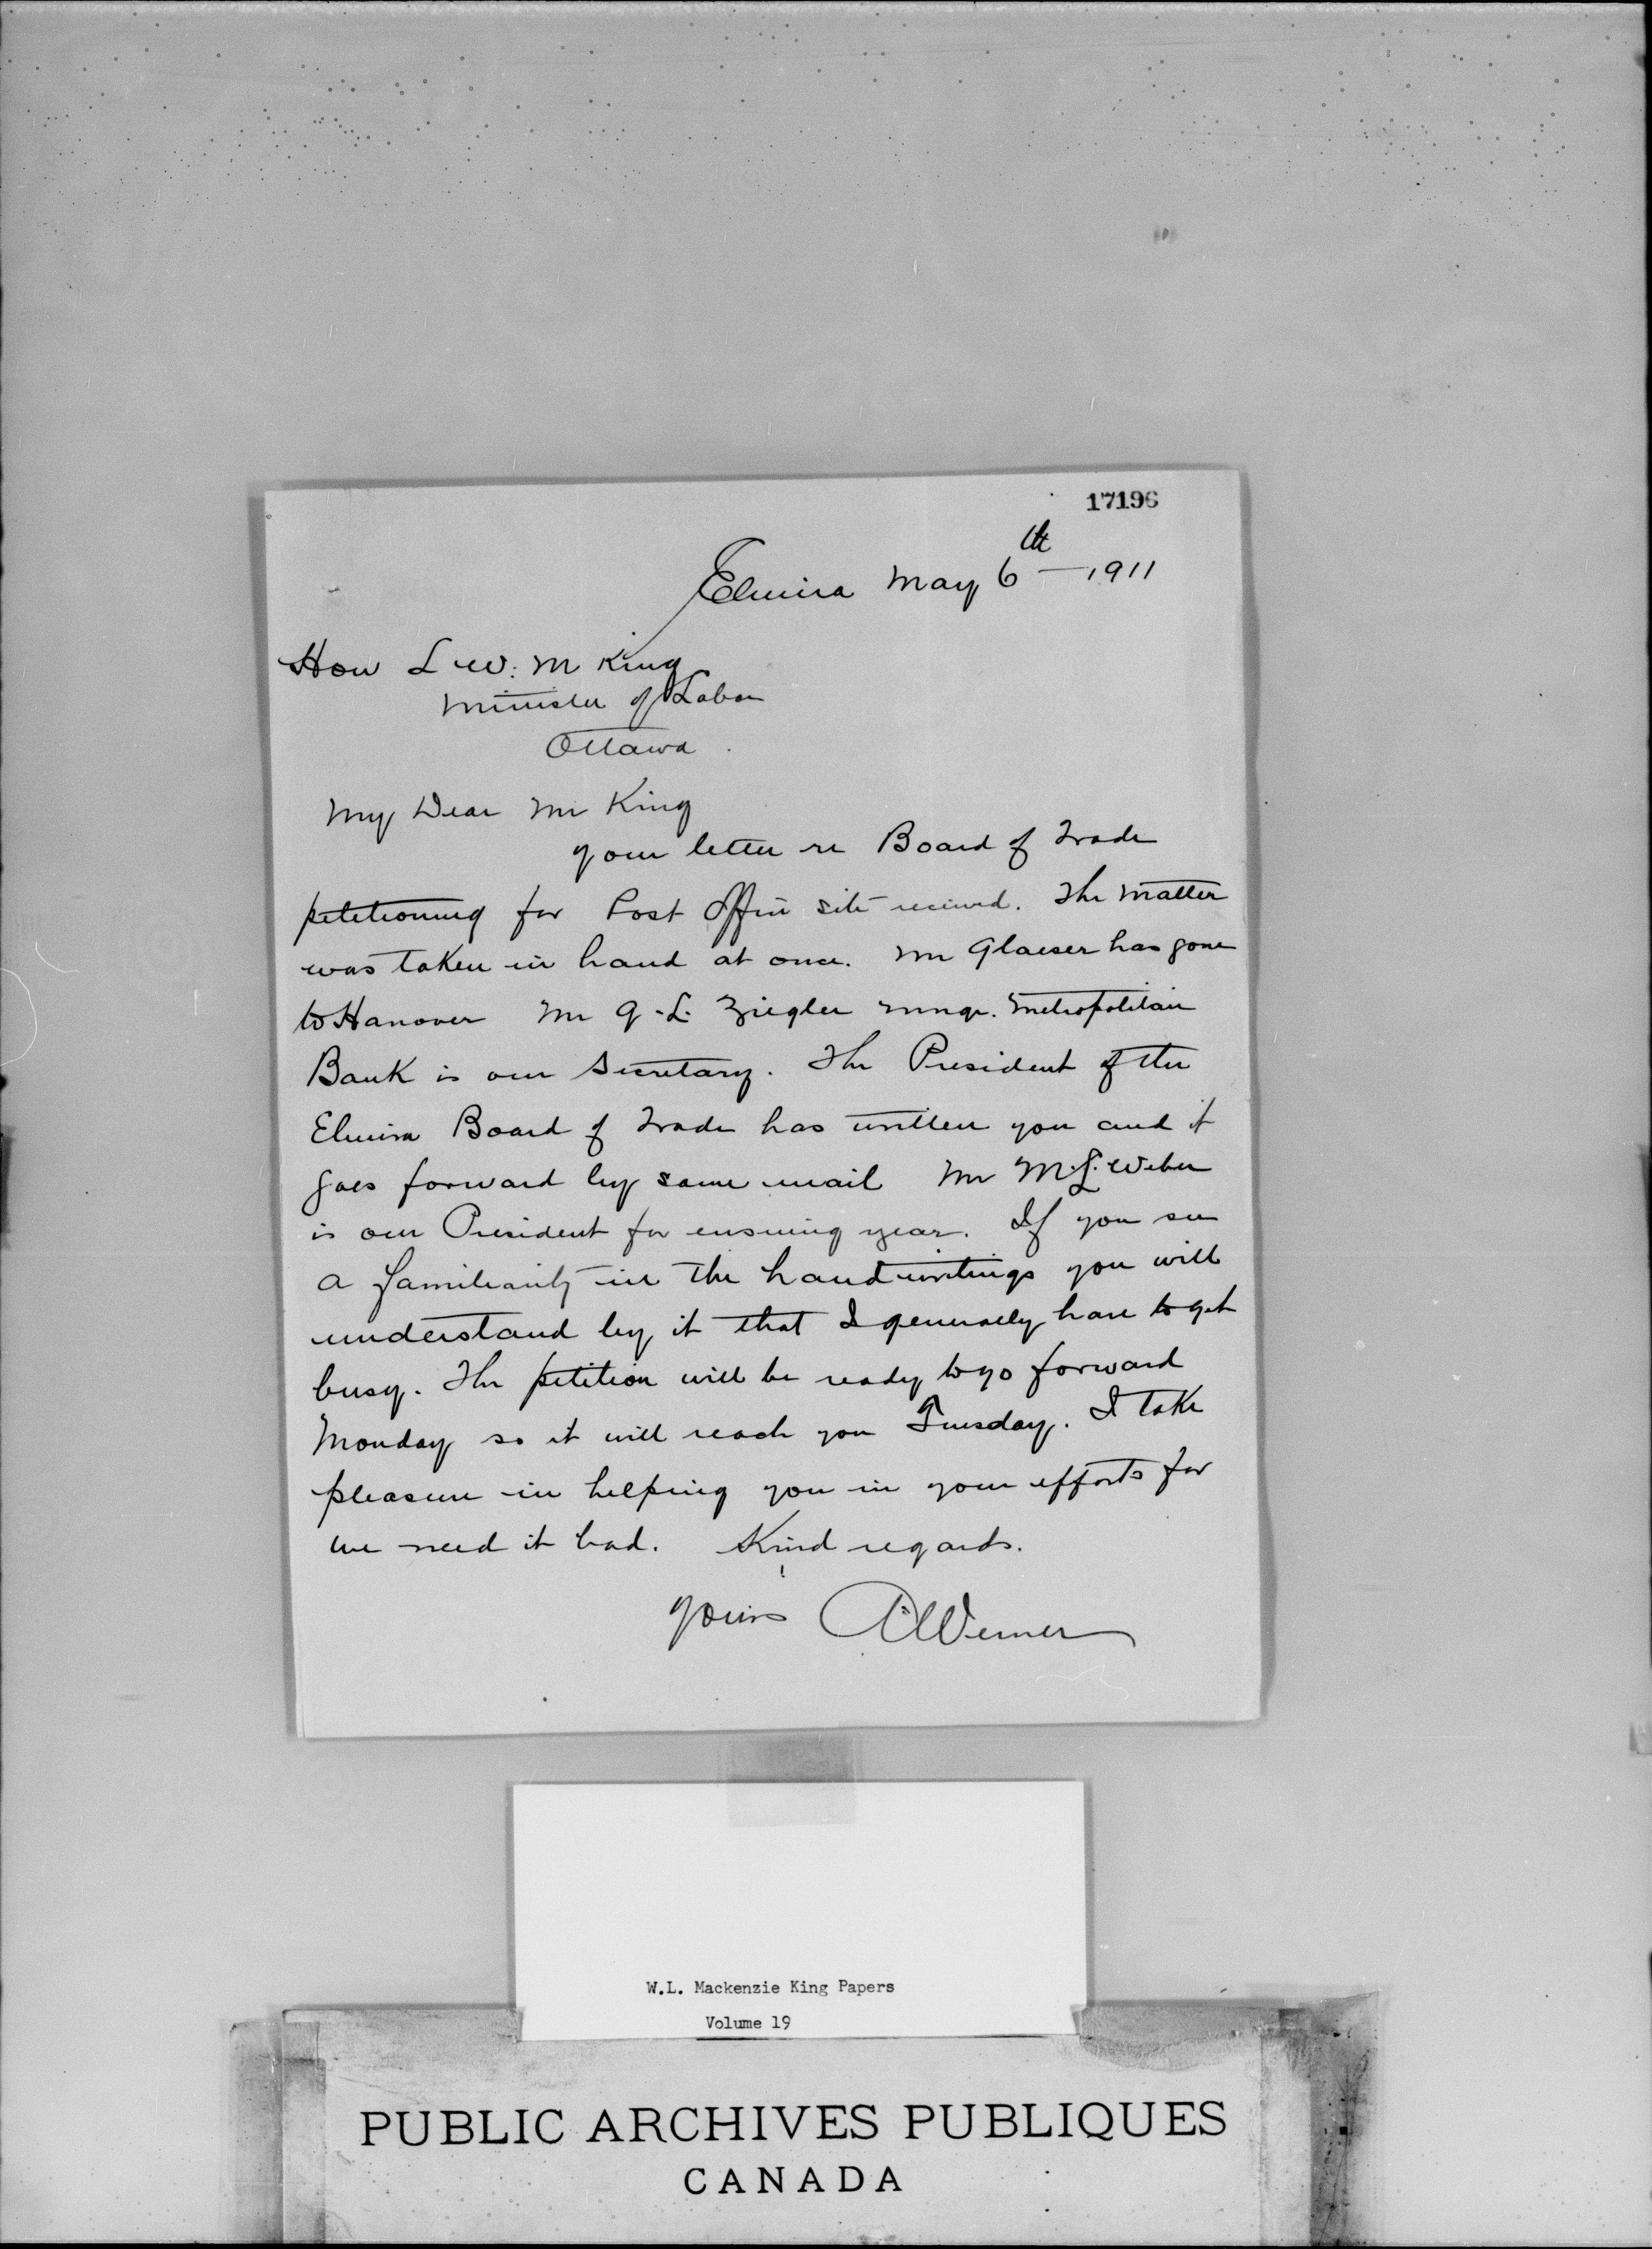 17196
Elmira May 6th — 1911
Hon L W. M King
Minister of Labor
Ottawa.
My Dear Mr King
your letter re Board of Trade
petitioning for Post Office site received. The matter
was taken in hand at once. Mr Glaeser has gone
to Hanover Mr G. L. Ziegler mngr. Metropolitan
Bank is our Secretary. The President of the
Elmira Board of Trade has written you and it
goes forward by same mail Mr M. L. Weber
is our President for ensuing year. If you see
a familiarity in the handwritings you will
understand by it that I generally have to get
busy. The petition will be ready to go forward
Monday so it will reach you Tuesday. I take
pleasure in helping you in your efforts for
we need it bad. Kind regards.
yours A Werner
W.L. Mackenzie King Papers
Volume 19
PUBLIC ARCHIVES PUBLIQUES
CANADA